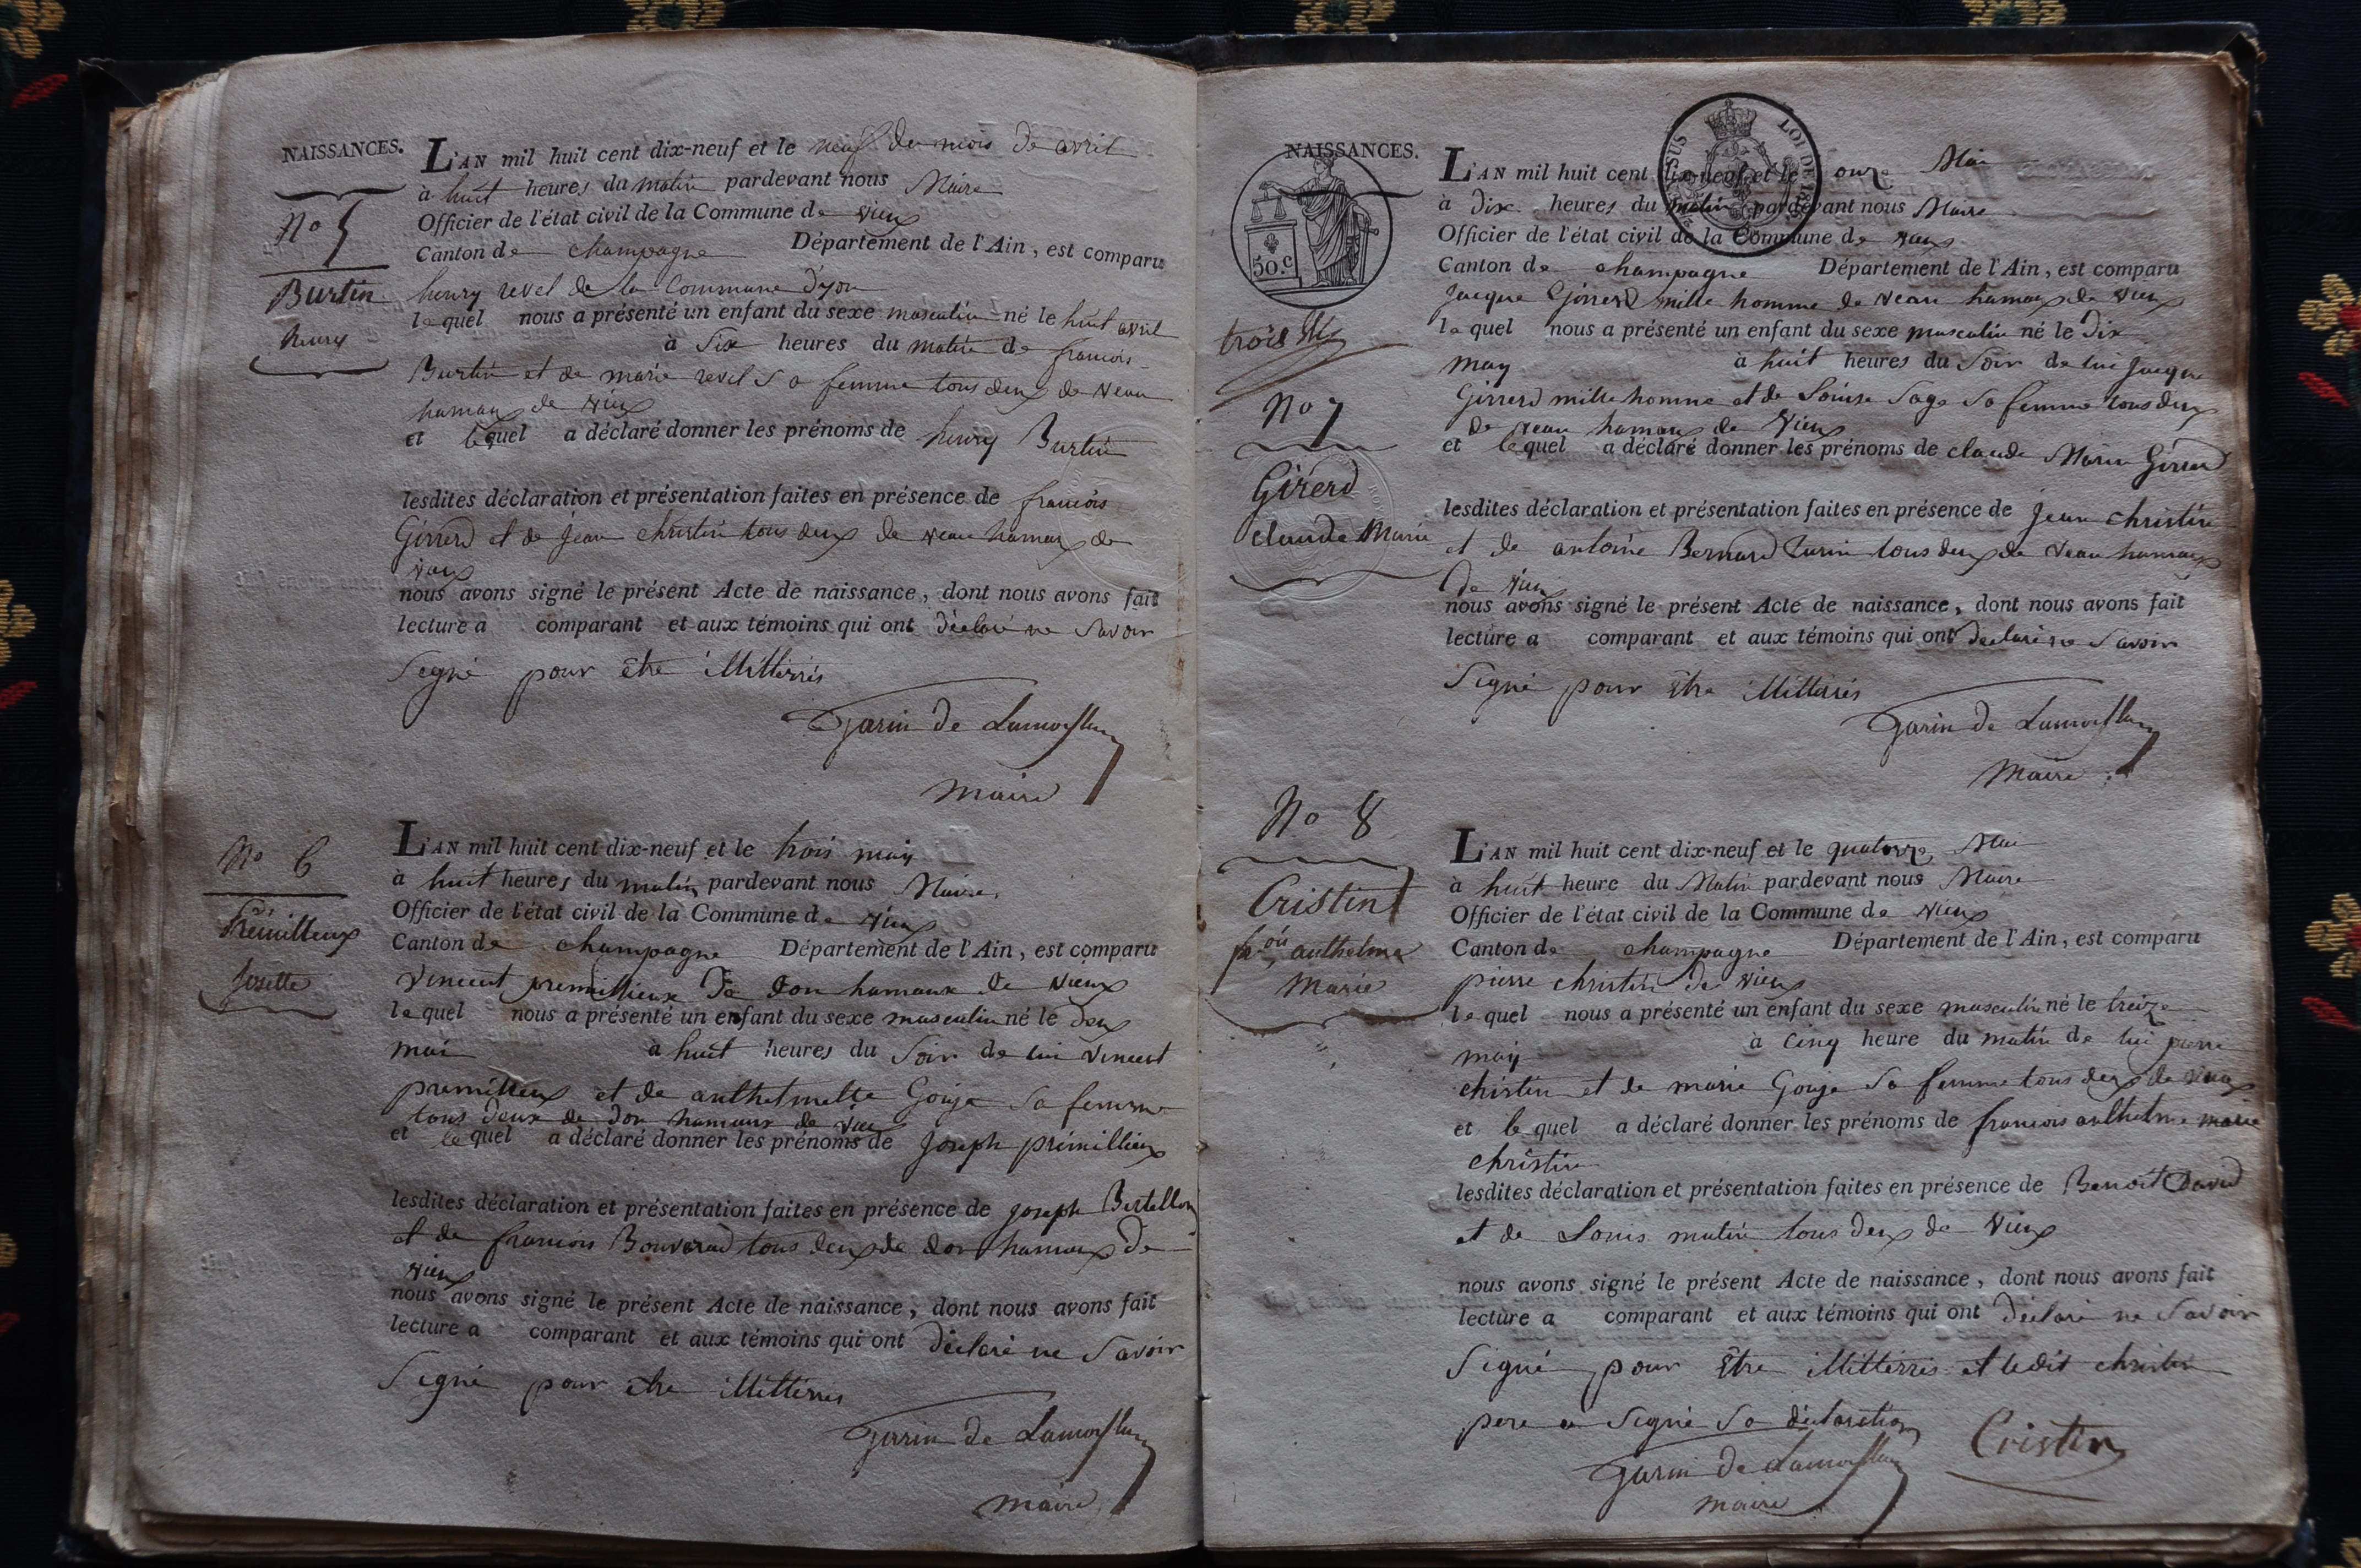 NAISSANCES.
No 5
Burtin
henry
L'AN mil huit cent dix-neuf et le neuf du mois de avril
à huit heures du matin pardevant nous Maire
Officier de l'état civil de la Commune de vieux
Canton de champagne Département de l'Ain, est comparu
henry revel de la Commune d'yon
lequel nous a présenté un enfant du sexe masculin né le huit avril
à Six heures du matin de francois
Burtin et de marie revel Sa femme tous deux de veau
hamaux de vieux
et lequel a déclaré donner les prénoms de henry Burtin
lesdites déclaration et présentation faites en présence de francois
Girrerd et de jean christin tous deux de veau hamaux de
vieux
nous avons signé le présent Acte de naissance, dont nous avons fait
lecture a comparant et aux témoins qui ont déclaré ne Savoir
Signé pour être illitterrés
Garin de Lamorflan
maire
No 6
Prémilleux
Josette
L'AN mil huit cent dix-neuf et le trois may
à huit heures du matin pardevant nous Maire
Officier de l'état civil de la Commune de vieux
Canton de champagne Département de l'Ain, est comparu
Vincent premillieux de don hamaux de vieux
lequel nous a présenté un enfant du sexe masculin né le deux
mai à huit heures du Soir de lui Vincent
premillieux et de anthelmette Gouje Sa femme
tous deux de don hamaux de vieux
et lequel a déclaré donner les prénoms de Joseph prémillieux
lesdites déclaration et présentation faites en présence de joseph Bertellon
et de francois Bouverad tous deux de don hamaux de
vieux
nous avons signé le présent Acte de naissance, dont nous avons fait
lecture a comparant et aux témoins qui ont déclaré ne Savoir
Signé pour être illitterrés
Garin de Lamorflan
maire
NAISSANCES.
50.C
LOI DE
trois
No 7
Girerd
claude Marie
L'AN mil huit cent dix-neuf et le onze Mai
à dix heures du matin pardevant nous Maire
Officier de l'état civil de la Commune de vieux
Canton de champagne Département de l'Ain, est comparu
Jacque Girrerd mille homme de veau hamaux de vieux
lequel nous a présenté un enfant du sexe masculin né le dix
may à huit heures du Soir de lui Jacque
Girrerd mille homme et de Louise Sage Sa femme tous deux
de veau hamaux de vieux
et lequel a déclaré donner les prénoms de claude Marie Girrerd
lesdites déclaration et présentation faites en présence de jean christin
et de antoine Bernard turin tous deux de veau hamaux
de vieux
nous avons signé le présent Acte de naissance, dont nous avons fait
lecture a comparant et aux témoins qui ont declaré ne Savoir
Signé pour être illitterés
Garin de Lamorflan
Maire
No 8
Cristin
fr.ois anthelme
Marie
L'AN mil huit cent dix-neuf et le quatorze Mai
à huit heure du Matin pardevant nous Maire
Officier de l'état civil de la Commune de vieux
Canton de champagne Département de l'Ain, est comparu
pierre christin de vieux
lequel nous a présenté un enfant du sexe masculin né le treize
may à cinq heure du matin de lui pierre
christin et de marie Gouje Sa femme tous deux de vieux
et lequel a déclaré donner les prénoms de francois anthelme marie
christin
lesdites déclaration et présentation faites en présence de Benoit David
et de Louis matin tous deux de vieux
nous avons signé le présent Acte de naissance, dont nous avons fait
lecture a comparant et aux témoins qui ont déclaré ne Savoir
Signé pour être illitterrés et ledit christin
pere a Signé Sa déclaration
Cristin
Garin de Lamorflan
maire